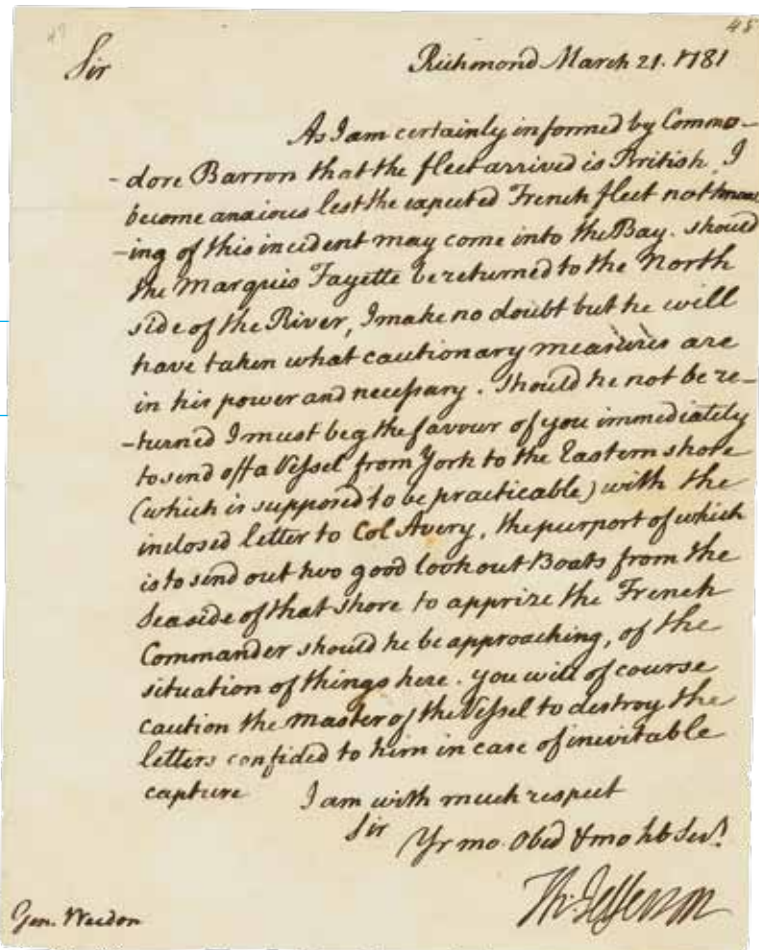 47
48
Sir
Richmond March 21. 1781
As I am certainly informed by Commo-
-dore Barron that the fleet arrived is British, I
become anxious lest the expected French fleet not know
-ing of this incident may come into the Bay. should
the Marquis Fayette be returned to the North
side of the River, I make no doubt but he will
have taken what cautionary measures are
in his power and necessary. Should he not be re-
-turned I must beg the favour of you immediately
to send off a Vessel from York to the Eastern shore
(which is supposed to be practicable) with the
inclosed letter to Col Avery, the purport of which
is to send out two good lookout Boats from the
Seaside of that shore to apprize the French
Commander should he be approaching, of the
situation of things here. you will of course
caution the master of the Vessel to destroy the
letters confided to him in case of inevitable
capture I am with much respect
Sir
Yr mo. Obed & mo hb Servt.
Th: Jefferson
Gen. Weedon